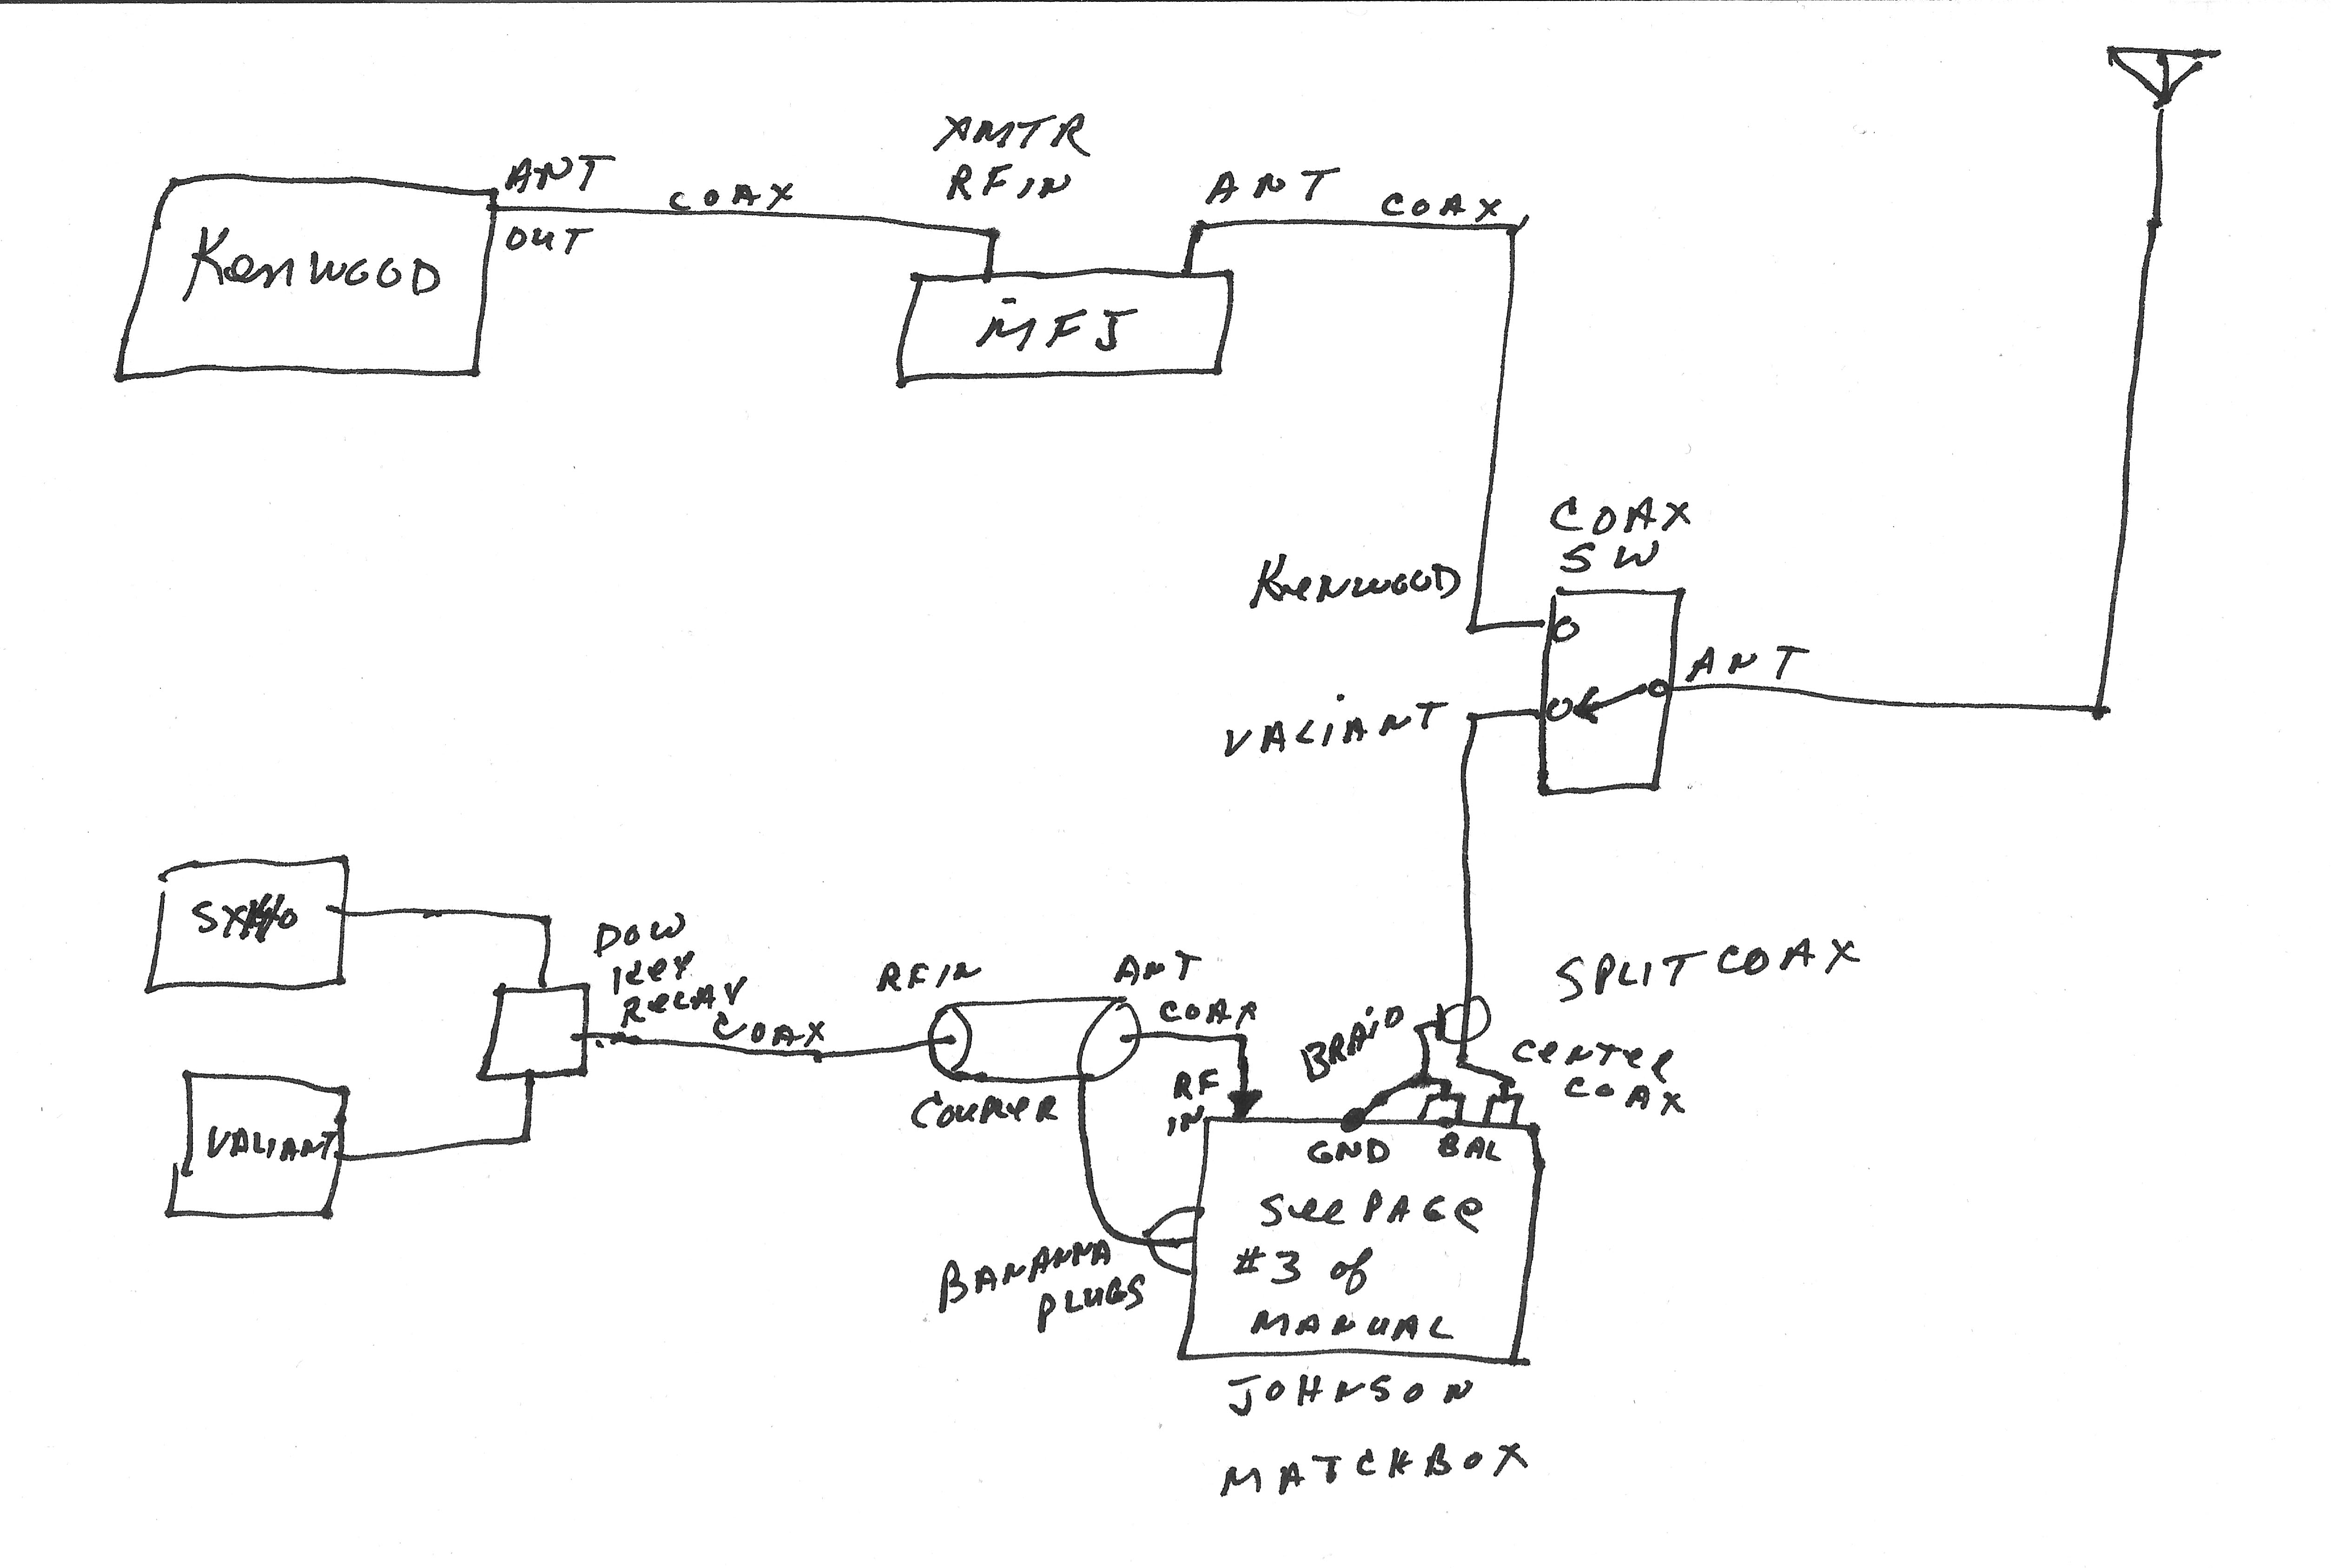 XMTR
RF IN
ANT
COAX
OUT
KENWOOD
ANT
COAX
MFJ
COAX
SW
KENWOOD
ANT
VALIANT
DOW
KEY
RELAY
COAX
VALIANT
RF IN
ANT
COAX
COUPLER
SPLIT COAX
BRAID
CENTER
COAX
RF
IN
GND
BAL
See PAGe
#3 of
MANUAL
BANANNA
PLUGS
JOHNSON
MATCHBOX